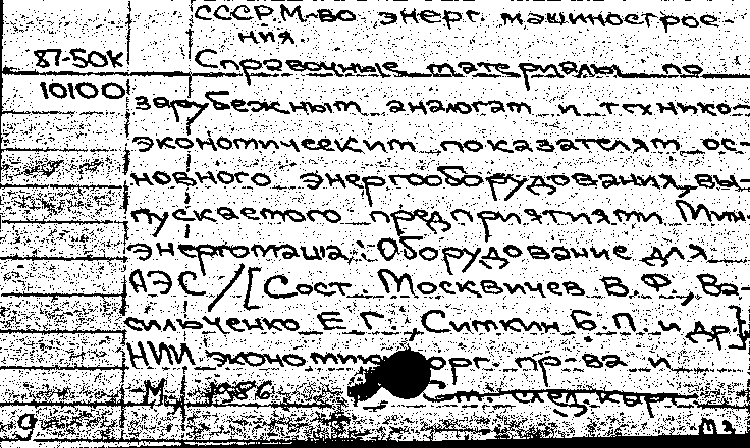 СССР. М-во энерг. машинострое-
ния.
87-50К Справочные материалы по
10100 зарубежным аналогам и технико-
экономическим показателям ос-
новного энергооборудования, вы-
пускаемого предприятиями Мин-
энергомаша: Оборудование для
АЭС / [Сост. Москвичев В.Ф., Ва-
сильченко Е.Г., Ситкин Б.П. и др.]
НИИ экономики орг. пр-ва и
-М., 1986 См. след. карт.
9